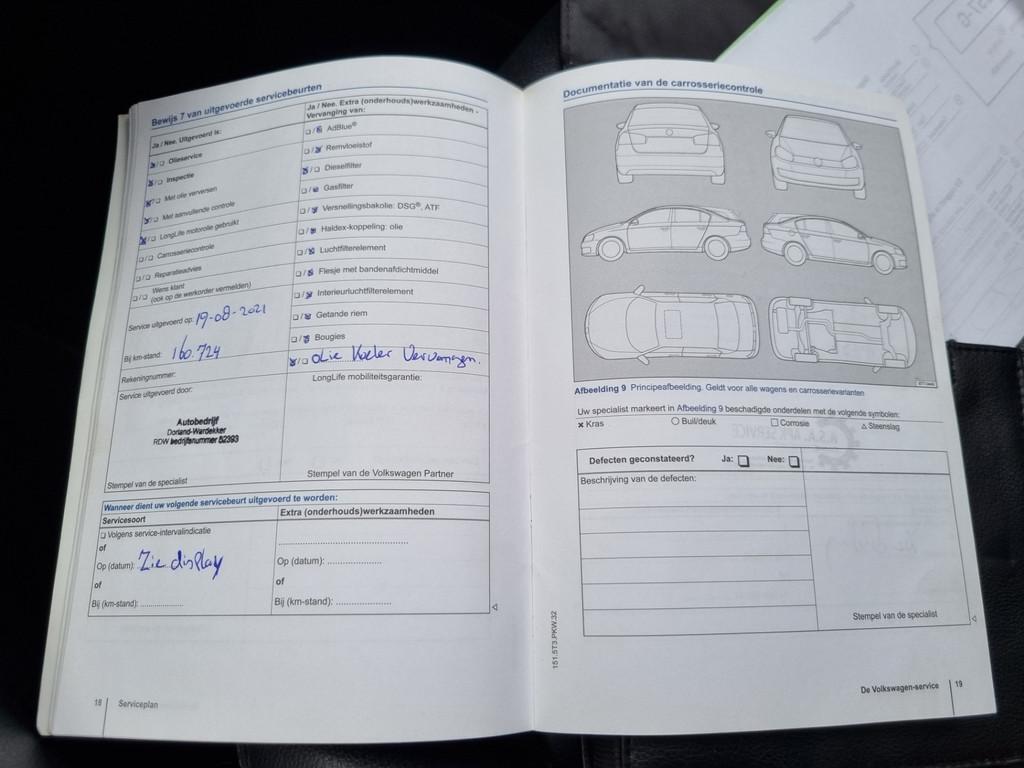 Bewijs 7 van uitgevoerde servicebeurten
Ja / Nee. Uitgevoerd is:
☒/☐ Olieservice
☒/☐ Inspectie
☒/☐ Met olie verversen
☒/☐ Met aanvullende controle
☒/☐ LongLife motorolie gebruikt
☐/☐ Carrosseriecontrole
☐/☐ Reparatieadvies
☐/☐ Wens klant
(ook op de werkorder vermelden)
Service uitgevoerd op: 19-08-2021
Bij km-stand: 160.724
Rekeningnummer:
Service uitgevoerd door:
Autobedrijf
Dorland-Wardekker
RDW bedrijfsnummer 52393
Stempel van de specialist
Ja / Nee. Extra (onderhouds)werkzaamheden -
Vervanging van:
☐/☒ AdBlue®
☐/☒ Remvloeistof
☒/☐ Dieselfilter
☐/☒ Gasfilter
☐/☒ Versnellingsbakolie: DSG®, ATF
☐/☒ Haldex-koppeling: olie
☐/☒ Luchtfilterelement
☐/☒ Flesje met bandenafdichtmiddel
☐/☒ Interieurluchtfilterelement
☐/☒ Getande riem
☐/☒ Bougies
☒/☐ olie Koeler Vervangen.
LongLife mobiliteitsgarantie:
Stempel van de Volkswagen Partner
Wanneer dient uw volgende servicebeurt uitgevoerd te worden:
Servicesoort
☐ Volgens service-intervalindicatie
of
Op (datum): Zie display
of
Bij (km-stand): ....................
Extra (onderhouds)werkzaamheden
Op (datum): ....................
of
Bij (km-stand): ....................
18 Serviceplan
Documentatie van de carrosseriecontrole
Afbeelding 9 Principeafbeelding. Geldt voor alle wagens en carrosserievarianten
Uw specialist markeert in Afbeelding 9 beschadigde onderdelen met de volgende symbolen:
× Kras ○ Buil/deuk ☐ Corrosie △ Steenslag
Defecten geconstateerd? Ja: ☐ Nee: ☐
Beschrijving van de defecten:
Stempel van de specialist
151.5T3.PKW.32
De Volkswagen-service 19